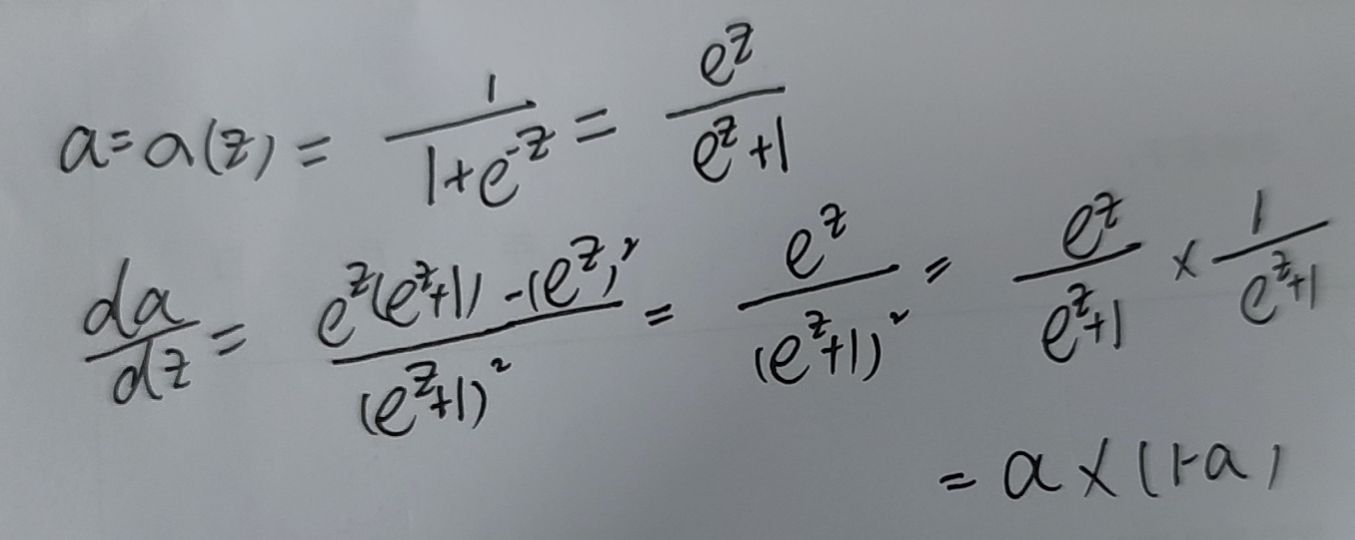 a = a(z) = \frac{1}{1+e^{-z}} = \frac{e^z}{e^z+1}
\frac{da}{dz} = \frac{e^z(e^z+1) - (e^z)^2}{(e^z+1)^2} = \frac{e^z}{(e^z+1)^2} = \frac{e^z}{e^z+1} × \frac{1}{e^z+1}
= a × (1-a)